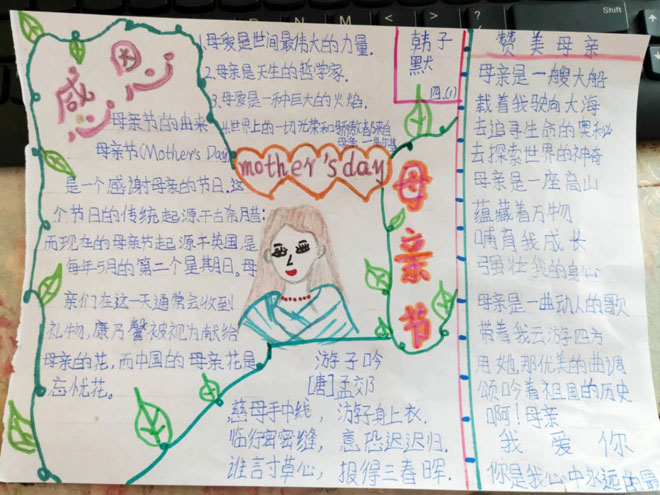 感恩
1.母爱是世间最伟大的力量.
2.母亲是天生的哲学家.
3.母爱是一种巨大的火焰.
4.世界上的一切光荣和骄傲都来自
母亲
韩子
默
四.(1)
母亲节的由来
母亲节(Mother's Day)
是一个感谢母亲的节日.这
个节日的传统起源于古希腊:
而现在的母亲节起源于英国,是
每年5月的第二个星期日。母
亲们在这一天通常会收到
礼物,康乃馨被视为献给
母亲的花,而中国的母亲花是
忘忧花。
mother's day
母亲节
游子吟
[唐]孟郊
慈母手中线,游子身上衣.
临行密密缝,意恐迟迟归.
谁言寸草心,报得三春晖.
赞美母亲
母亲是一艘大船
载着我驶向大海
去追寻生命的奥秘
去探索世界的神奇
母亲是一座高山
蕴藏着万物
哺育我成长
强壮我的身心
母亲是一曲动人的歌
带着我云游四方
用她那优美的曲调
颂吟着祖国的历史
啊!母亲
我爱你
你是我心中永远的最
Shift